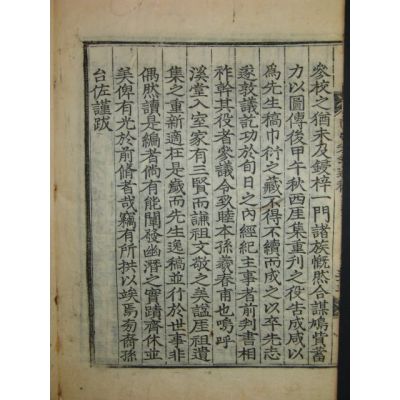 參校之猶未及鋟梓一門諸族慨然合謀鳩貲蓄
力以圖傳後甲午秋西厓集重刊之役告成咸以
爲先生稿巾衍之藏不得不續而成之以卒先志
遂敦議訖功於旬日之內經紀主事者前判書相
祚幹其役者參議令致睦本孫羲春甫也嗚呼
溪堂入室家有三賢而謙祖文敬之美謚厓祖遺
集之重新適在是歲而先生逸稿並行於世事非
偶然讀是編者倘有能闡發幽潛之實蹟齊休並
美俾有光於前脩者哉竊有所拱以竢焉旁裔孫
台佐謹跋